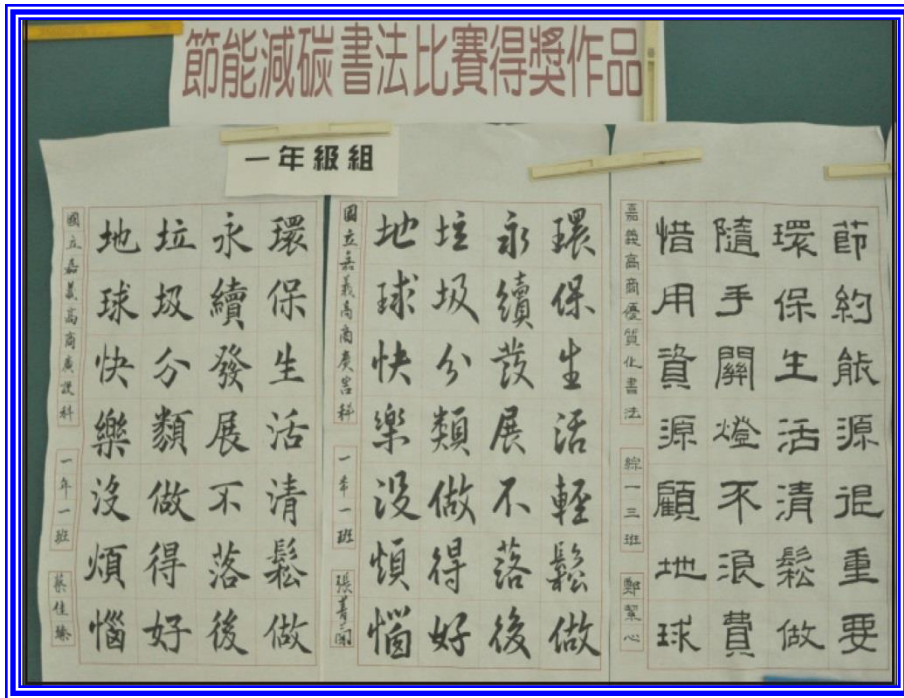 節能減碳書法比賽得獎作品
一年級組
環保生活清鬆做
永續發展不落後
垃圾分類做得好
地球快樂沒煩惱
國立嘉義高商廣設科
一年一班
蔡佳
環保生活輕鬆做
永續發展不落後
垃圾分類做得好
地球快樂沒煩惱
國立嘉義高商
一年一班
張菁
節約能源很重要
環保生活清鬆做
隨手關燈不浪費
惜用資源顧地球
嘉義高商優質化書法
綜一三班
鄭絜心